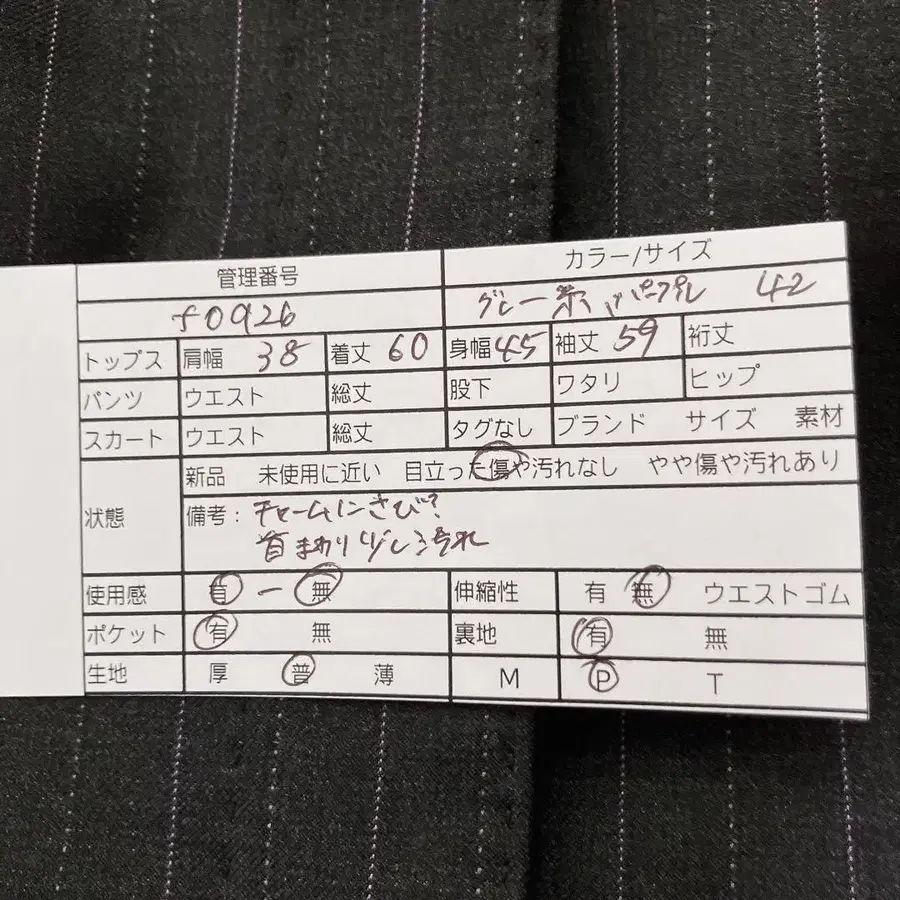 管理番号 カラー/サイズ
f0926 グレー系 パープル 42
トップス 肩幅 38 着丈 60 身幅 45 袖丈 59 裄丈
パンツ ウエスト 総丈 股下 ワタリ ヒップ
スカート ウエスト 総丈 タグなし ブランド サイズ 素材
状態 新品 未使用に近い 目立った傷や汚れなし やや傷や汚れあり
備考: チャームにさび?
首まわり少し汚れ
使用感 有 ー 無 伸縮性 有 無 ウエストゴム
ポケット 有 無 裏地 有 無
生地 厚 普 薄 M P T